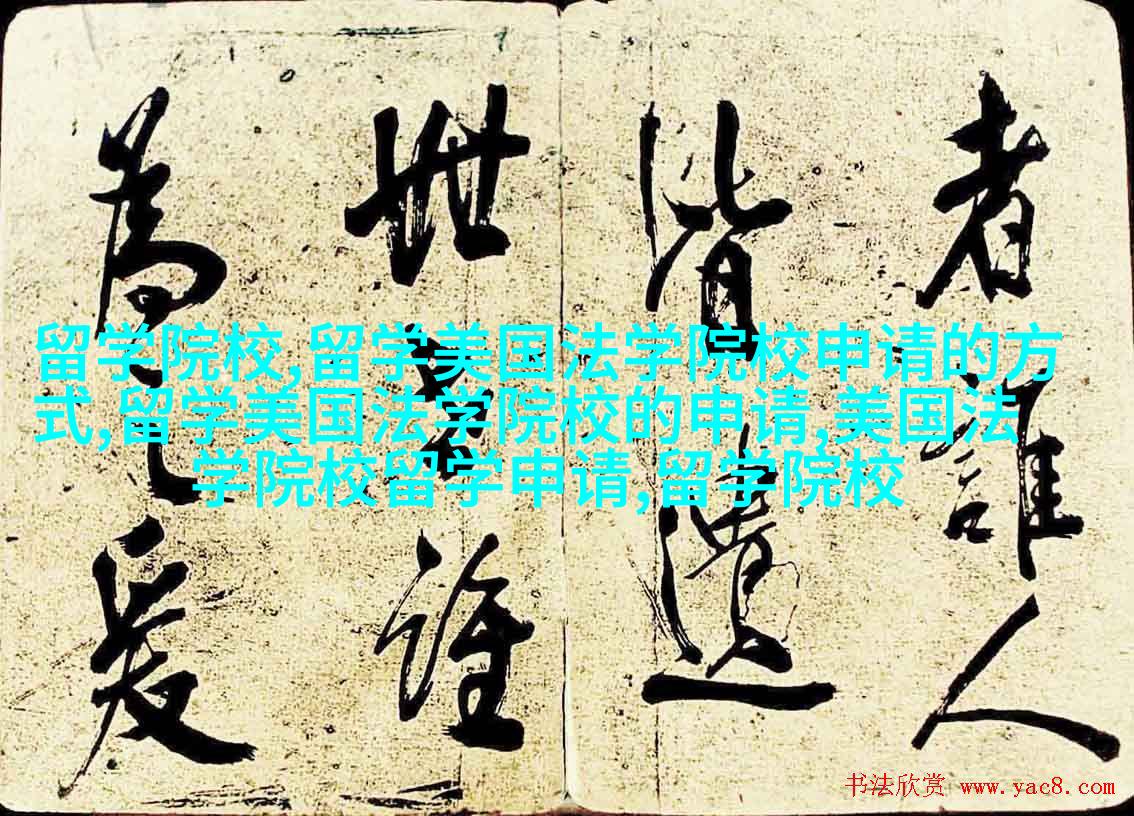 者誰人
皆遺
世誰
為
留学院校,留学美国法学院校申请的方
式,留学美国法学院校的申请,美国法
学院校留学申请,留学院校
书法欣赏 www.yac8.com